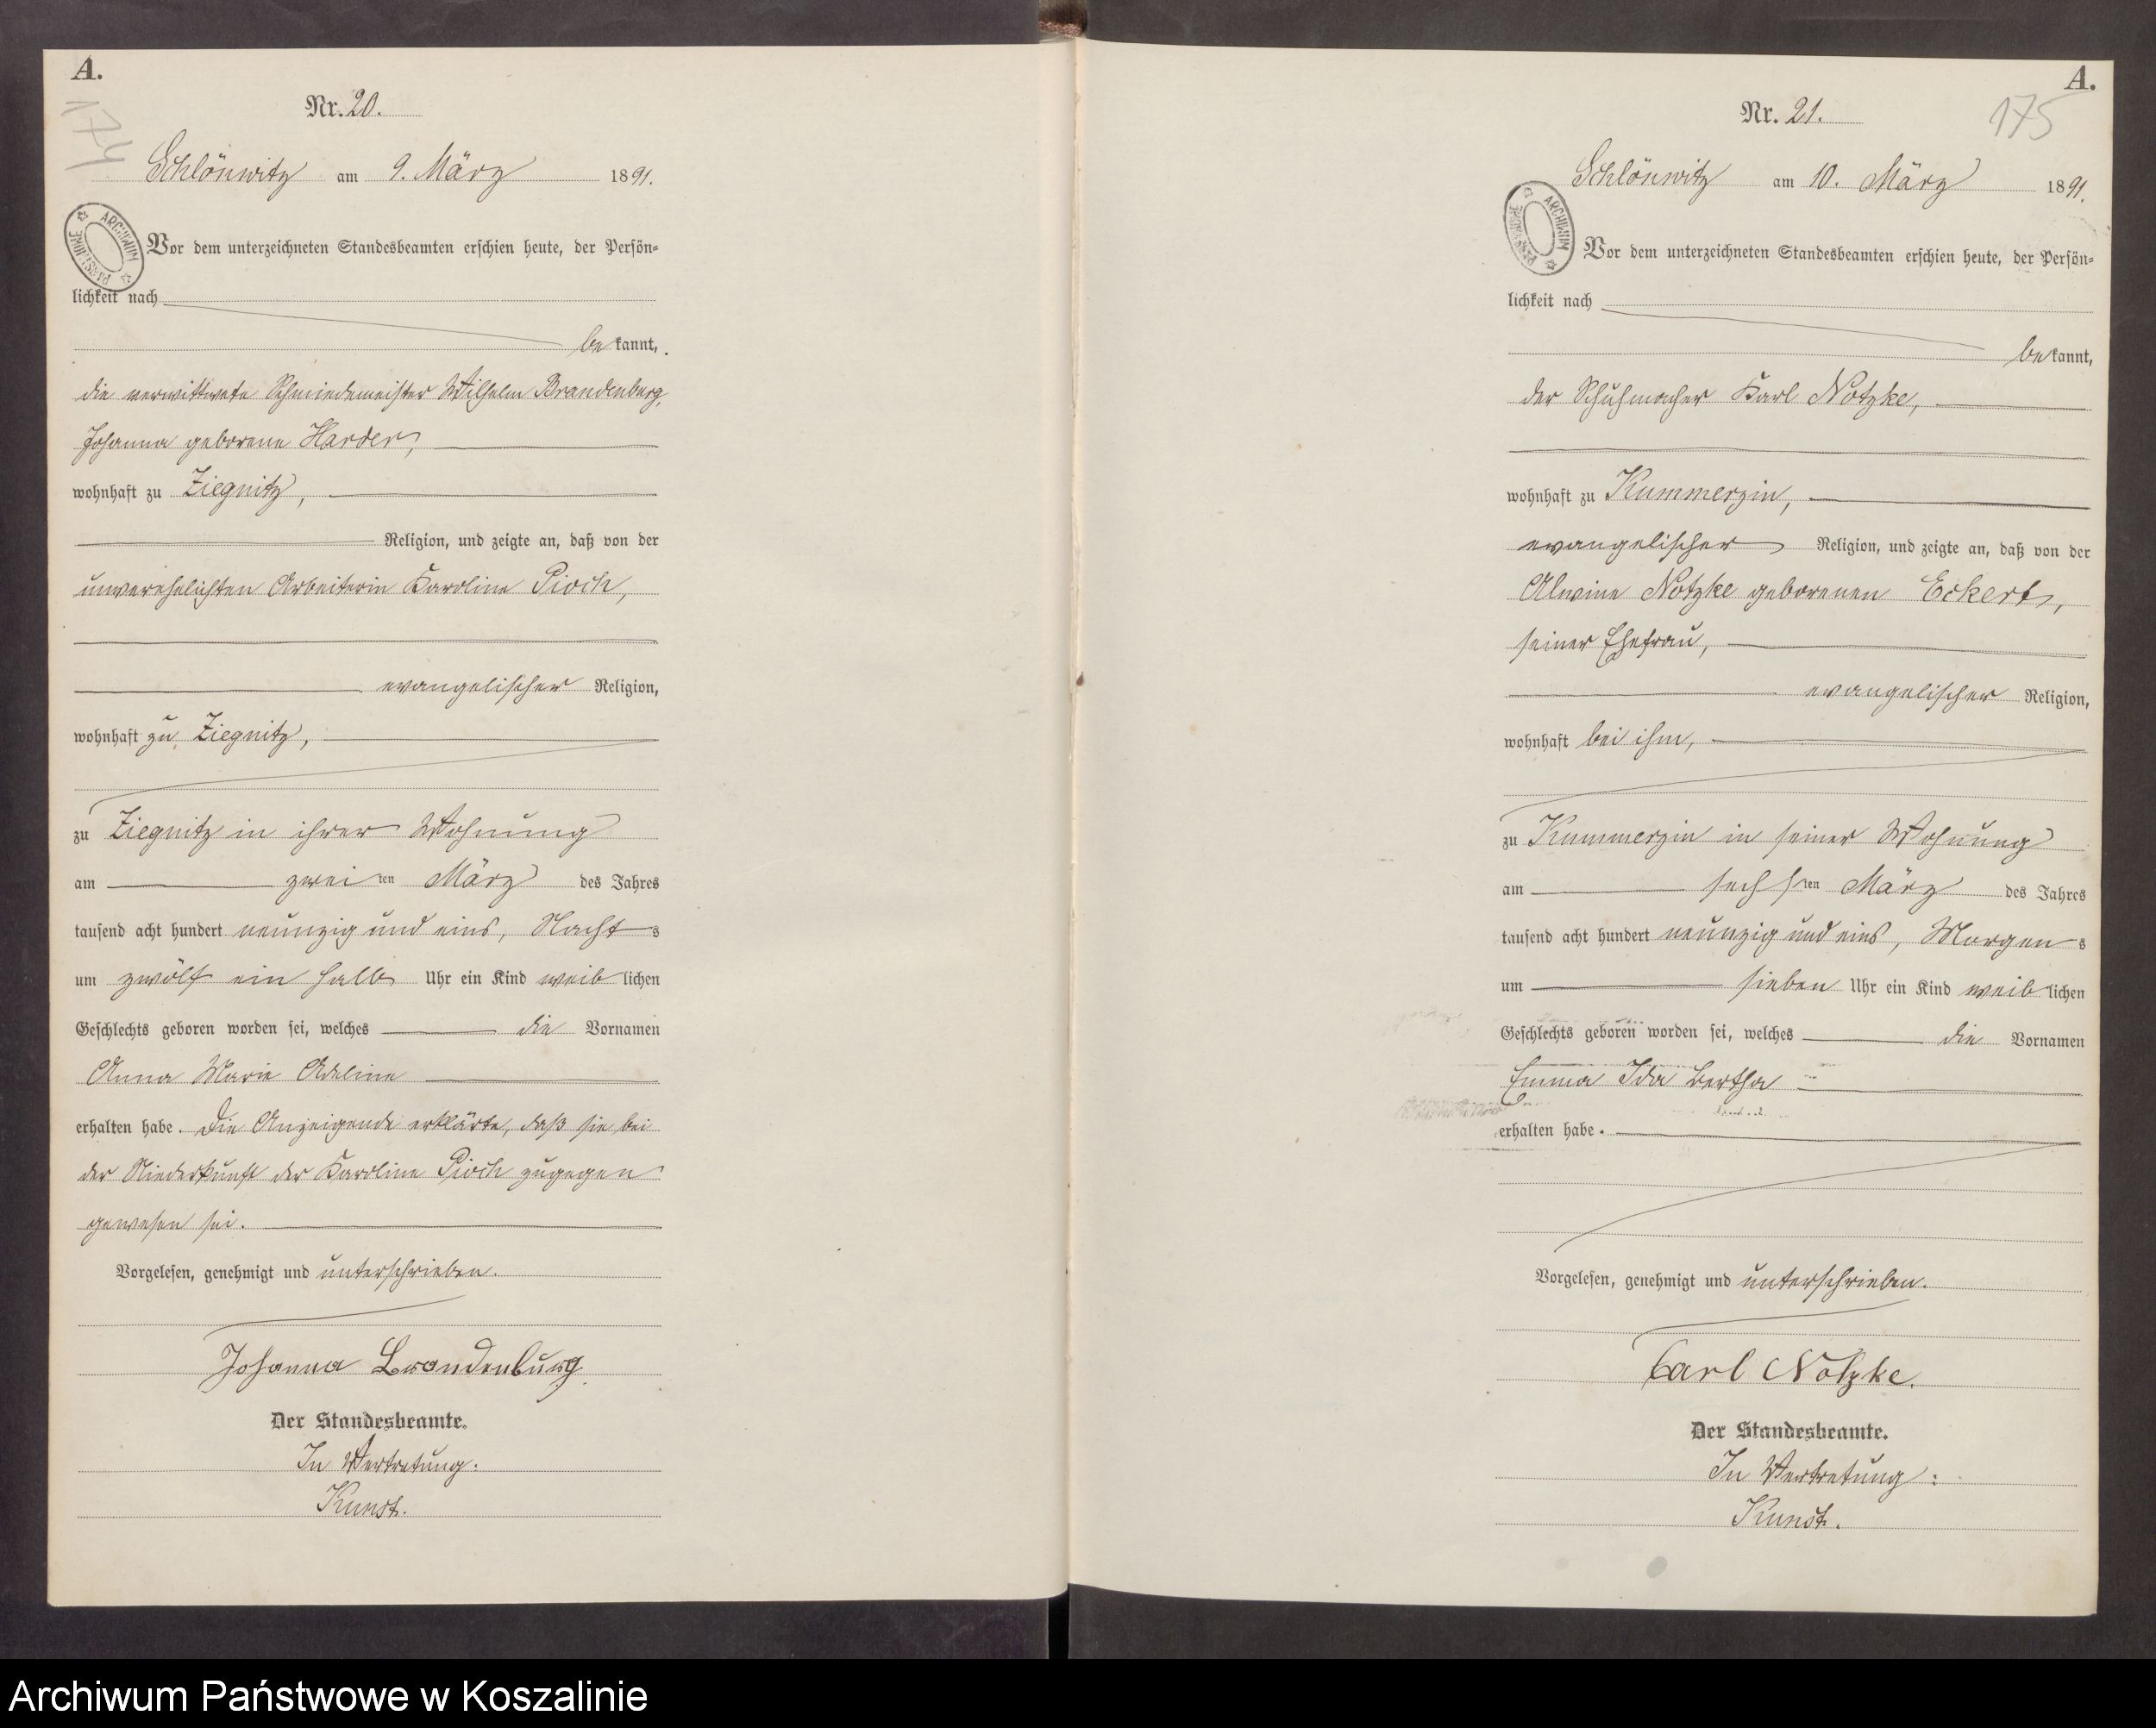 A.
174
Nr. 20.
Schlönwitz am 9. März 1891.
ARCHIWUM PAŃSTWOWE
Vor dem unterzeichneten Standesbeamten erschien heute, der Persön-
lichkeit nach
bekannt,
die verwittwete Schmiedemeister Wilhelm Brandenburg,
Johanna geborene Harder,
wohnhaft zu Ziegnitz,
Religion, und zeigte an, daß von der
unverehelichten Arbeiterin Karoline Pioch,
evangelischer Religion,
wohnhaft zu Ziegnitz,
zu Ziegnitz in ihrer Wohnung
am zweiten März des Jahres
tausend acht hundert neunzig und eins, Nachts
um zwölf ein halb Uhr ein Kind weiblichen
Geschlechts geboren worden sei, welches die Vornamen
Anna Marie Adeline
erhalten habe. Die Anzeigende erklärte, daß sie bei
der Niederkunft der Karoline Pioch zugegen
gewesen sei.
Vorgelesen, genehmigt und unterschrieben.
Johanna Brandenburg.
Der Standesbeamte.
In Vertretung:
Kunst.
A.
175
Nr. 21.
Schlönwitz am 10. März 1891.
ARCHIWUM PAŃSTWOWE
Vor dem unterzeichneten Standesbeamten erschien heute, der Persön-
lichkeit nach
bekannt,
der Schuhmacher Karl Notzke,
wohnhaft zu Kummerzin,
evangelischer Religion, und zeigte an, daß von der
Alwine Notzke geborenen Eckert,
seiner Ehefrau,
evangelischer Religion,
wohnhaft bei ihm,
zu Kummerzin in seiner Wohnung
am sechsten März des Jahres
tausend acht hundert neunzig und eins, Morgens
um sieben Uhr ein Kind weiblichen
Geschlechts geboren worden sei, welches die Vornamen
Emma Ida Bertha
erhalten habe.
Vorgelesen, genehmigt und unterschrieben.
Carl Notzke.
Der Standesbeamte.
In Vertretung:
Kunst.
Archiwum Państwowe w Koszalinie